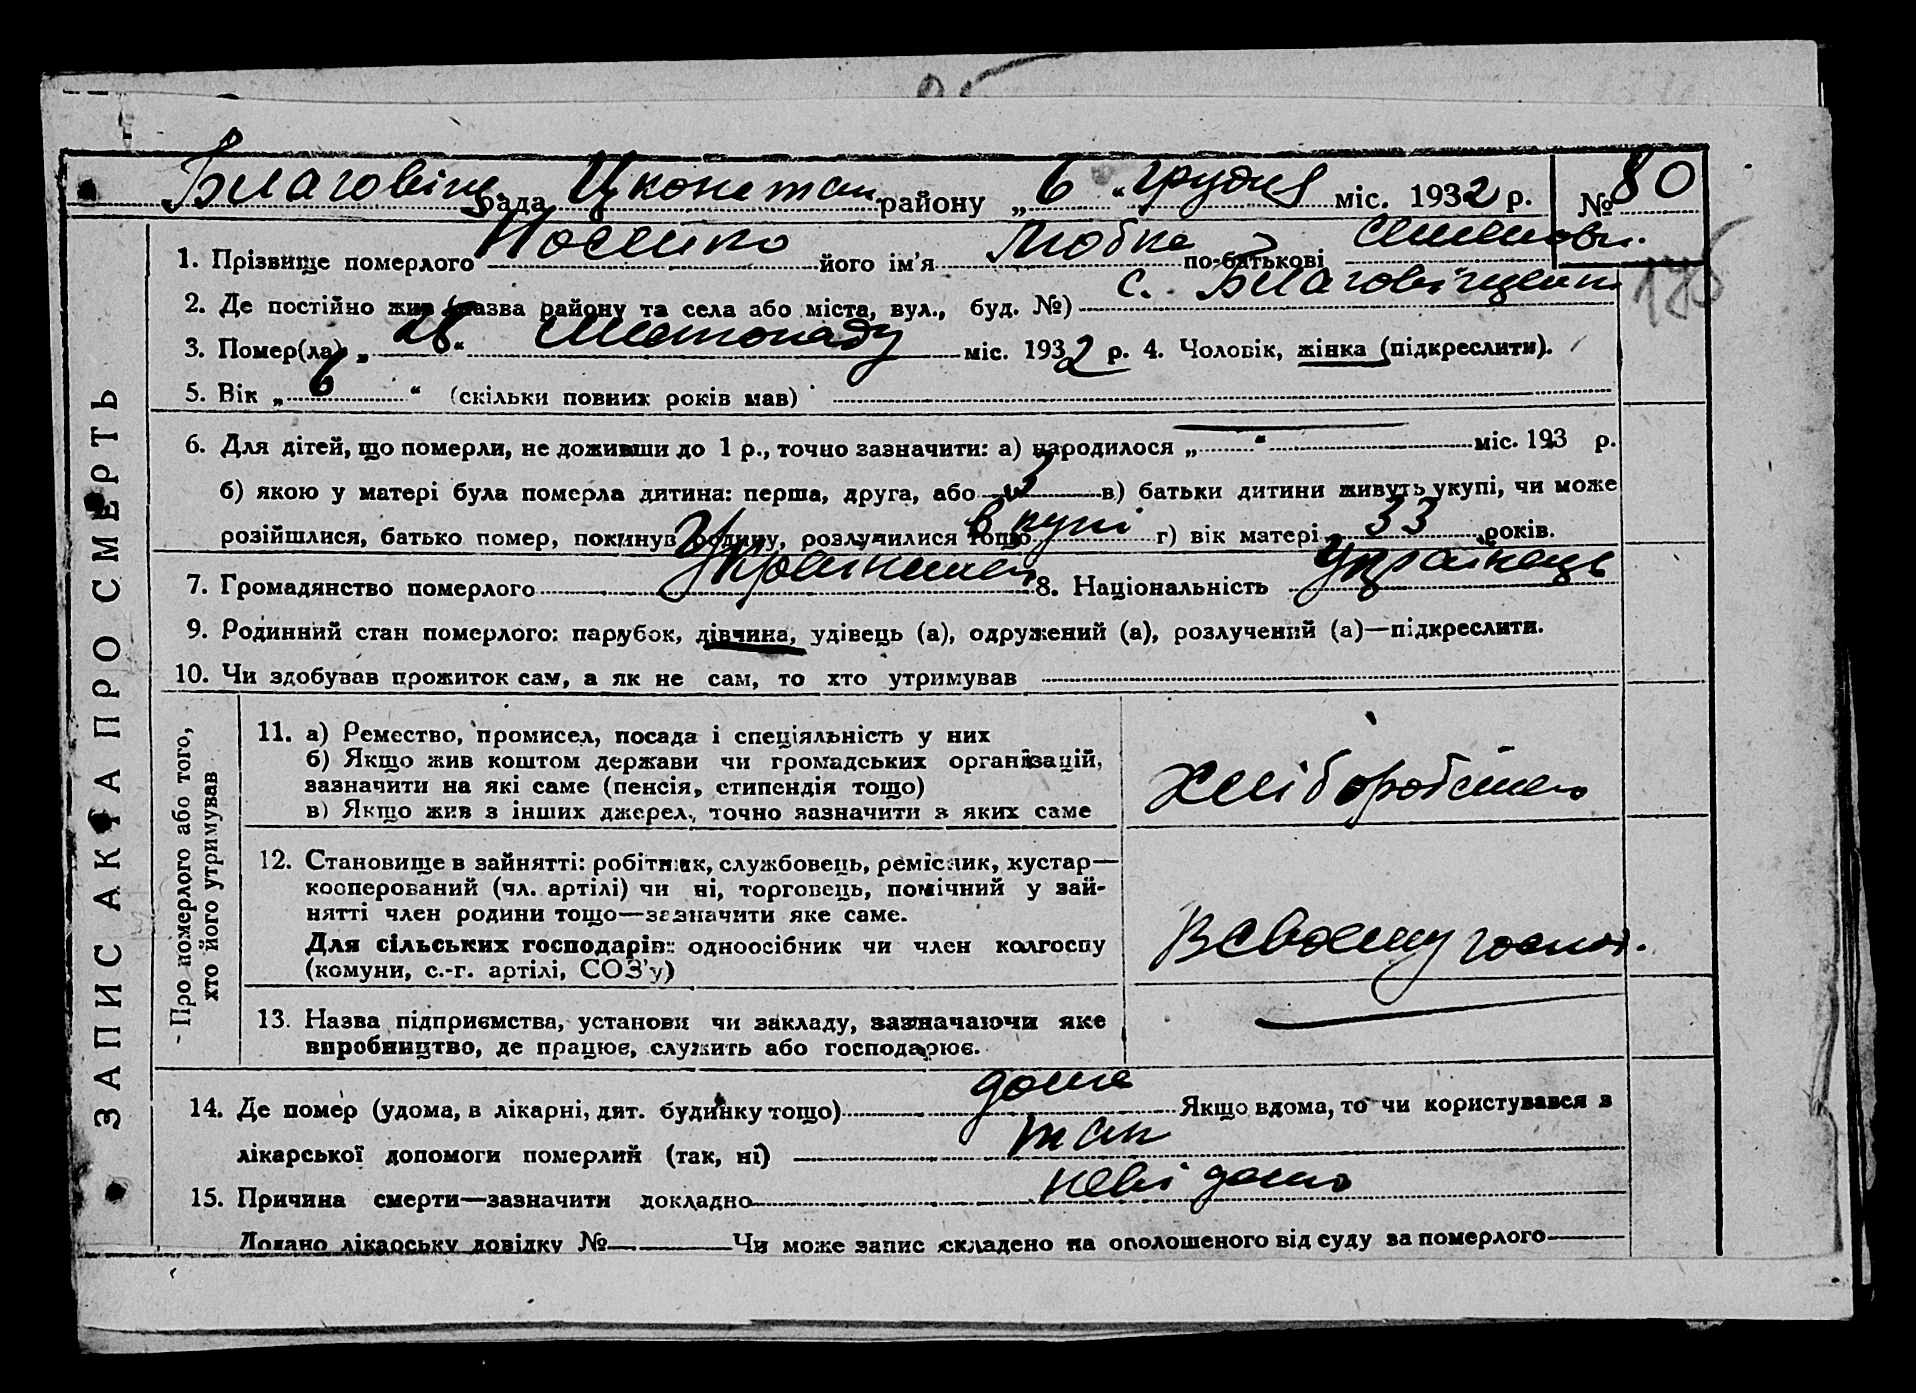 Благовіщ рада Цконстан району „6“ грудня міс. 1932 р. № 80
1. Прізвище померлого Носенко його ім’я Любка по-батькові Семенов.
175
2. Де постійно жив (назва району та села або міста, вул., буд. №) с. Благовіщенк
3. Помер(ла) „ “ Листопаду міс. 1932 р. 4. Чоловік, жінка (підкреслити).
5. Вік „6“ (скільки повних років мав)
6. Для дітей, що померли, не доживши до 1 р., точно зазначити: а) народилося „ “ міс. 193 р.
б) якою у матері була померла дитина: перша, друга, або 3 в) батьки дитини живуть укупі, чи може
розійшлися, батько помер, покинув родину, розлучилися тощо в купі г) вік матері 33 років.
7. Громадянство померлого 8. Національність Українець
9. Родинний стан померлого: парубок, дівчина, удівець (а), одружений (а), розлучений (а)—підкреслити.
10. Чи здобував прожиток сам, а як не сам, то хто утримував
ЗАПИС АКТА ПРО СМЕРТЬ
Про померлого або того,
хто його утримував
11. а) Ремество, промисел, посада і спеціяльність у них
б) Якщо жив коштом держави чи громадських організацій,
зазначити на які саме (пенсія, стипендія тощо)
в) Якщо жив з інших джерел, точно зазначити з яких саме
хліборобством
12. Становище в зайнятті: робітник, службовець, ремісник, кустар—
кооперований (чл. артілі) чи ні, торговець, помічний у зай-
нятті член родини тощо—зазначити яке саме.
Для сільських господарів: одноосібник чи член колгоспу
(комуни, с.-г. артілі, СОЗ’у)
В своєму господ.
13. Назва підприємства, установи чи закладу, зазначаючи яке
виробництво, де працює, служить або господарює.
14. Де помер (удома, в лікарні, дит. будинку тощо) дома Якщо вдома, то чи користувався з
лікарської допомоги померлий (так, ні) так
15. Причина смерти—зазначити докладно невідомо
Додано лікарську довідку № Чи може запис складено на оголошеного від суду за померлого